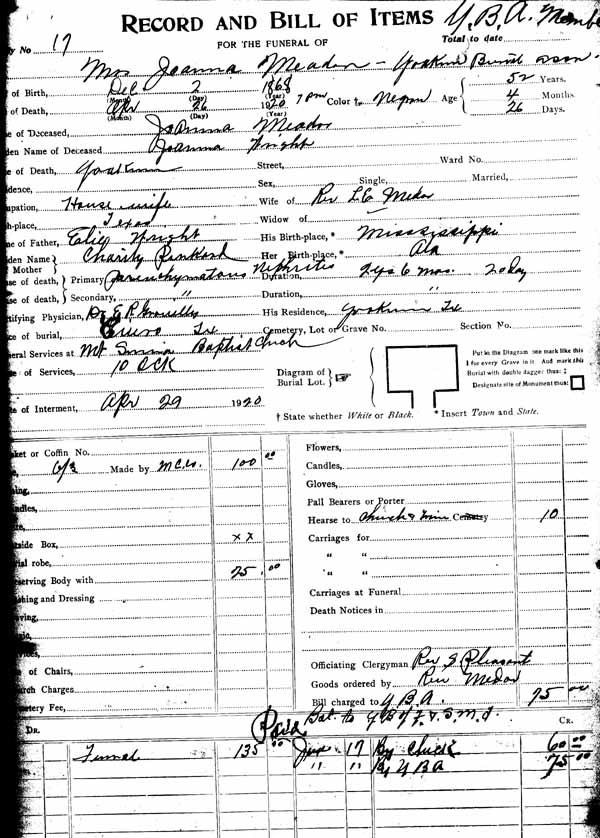 RECORD AND BILL OF ITEMS
Y.B.A. Membe
Total to date
No 17
FOR THE FUNERAL OF
Mrs Joanna Meador - Yoakum Burial assn.
of Birth, Dec 2 1868 52 Years.
(Month) (Day) (Year)
of Death, Apr 26 1920 7 pm Color † Negro Age 4 Months
(Month) (Day) (Year)
26 Days.
of Deceased, Joanna Meador
den Name of Deceased Joanna Wright
e of Death, Yoakum Street, Ward No.
idence, Sex, Single, Married,
upation, House wife Wife of Rev. L.E.
h-place, Texas Widow of
e of Father, Wright His Birth-place, * Mississippi
den Name Mother Charity Her Birth-place, * Ala
se of death, Primary Parenchymatous Nephrites Duration, 2 yrs 6 mos. 20 day
se of death, Secondary, " Duration, "
tifying Physician, Dr. His Residence, Yoakum Tx
ce of burial, Cuero Tx Cemetery, Lot or Grave No. Section No.
eral Services at Mt Baptist Church
e of Services, 10 OCK
Diagram of Burial Lot.
Put in the Diagram one mark like this ‡ for every Grave in it. And mark this Burial with double dagger thus: ‡
Designate site of Monument thus:
e of Interment, Apr 29 1920
† State whether White or Black. * Insert Town and State.
ket or Coffin No.
6/3 Made by M.C. Co. 100 00
tside Box, x x
ial robe,
serving Body with 25.00
shing and Dressing
of Chairs,
rch Charges
etery Fee,
Flowers,
Candles,
Gloves,
Pall Bearers or Porter
Hearse to Church & Cemetery 10
Carriages for
" "
" "
Carriages at Funeral
Death Notices in
Officiating Clergyman Rev Pleasant
Goods ordered by Rev Meador
Bill charged to Y.B.A. 75 00
Paid Bal. to
DR. CR.
Funeral 135 00 17 By Check 60 00
" " By YBA 75 00